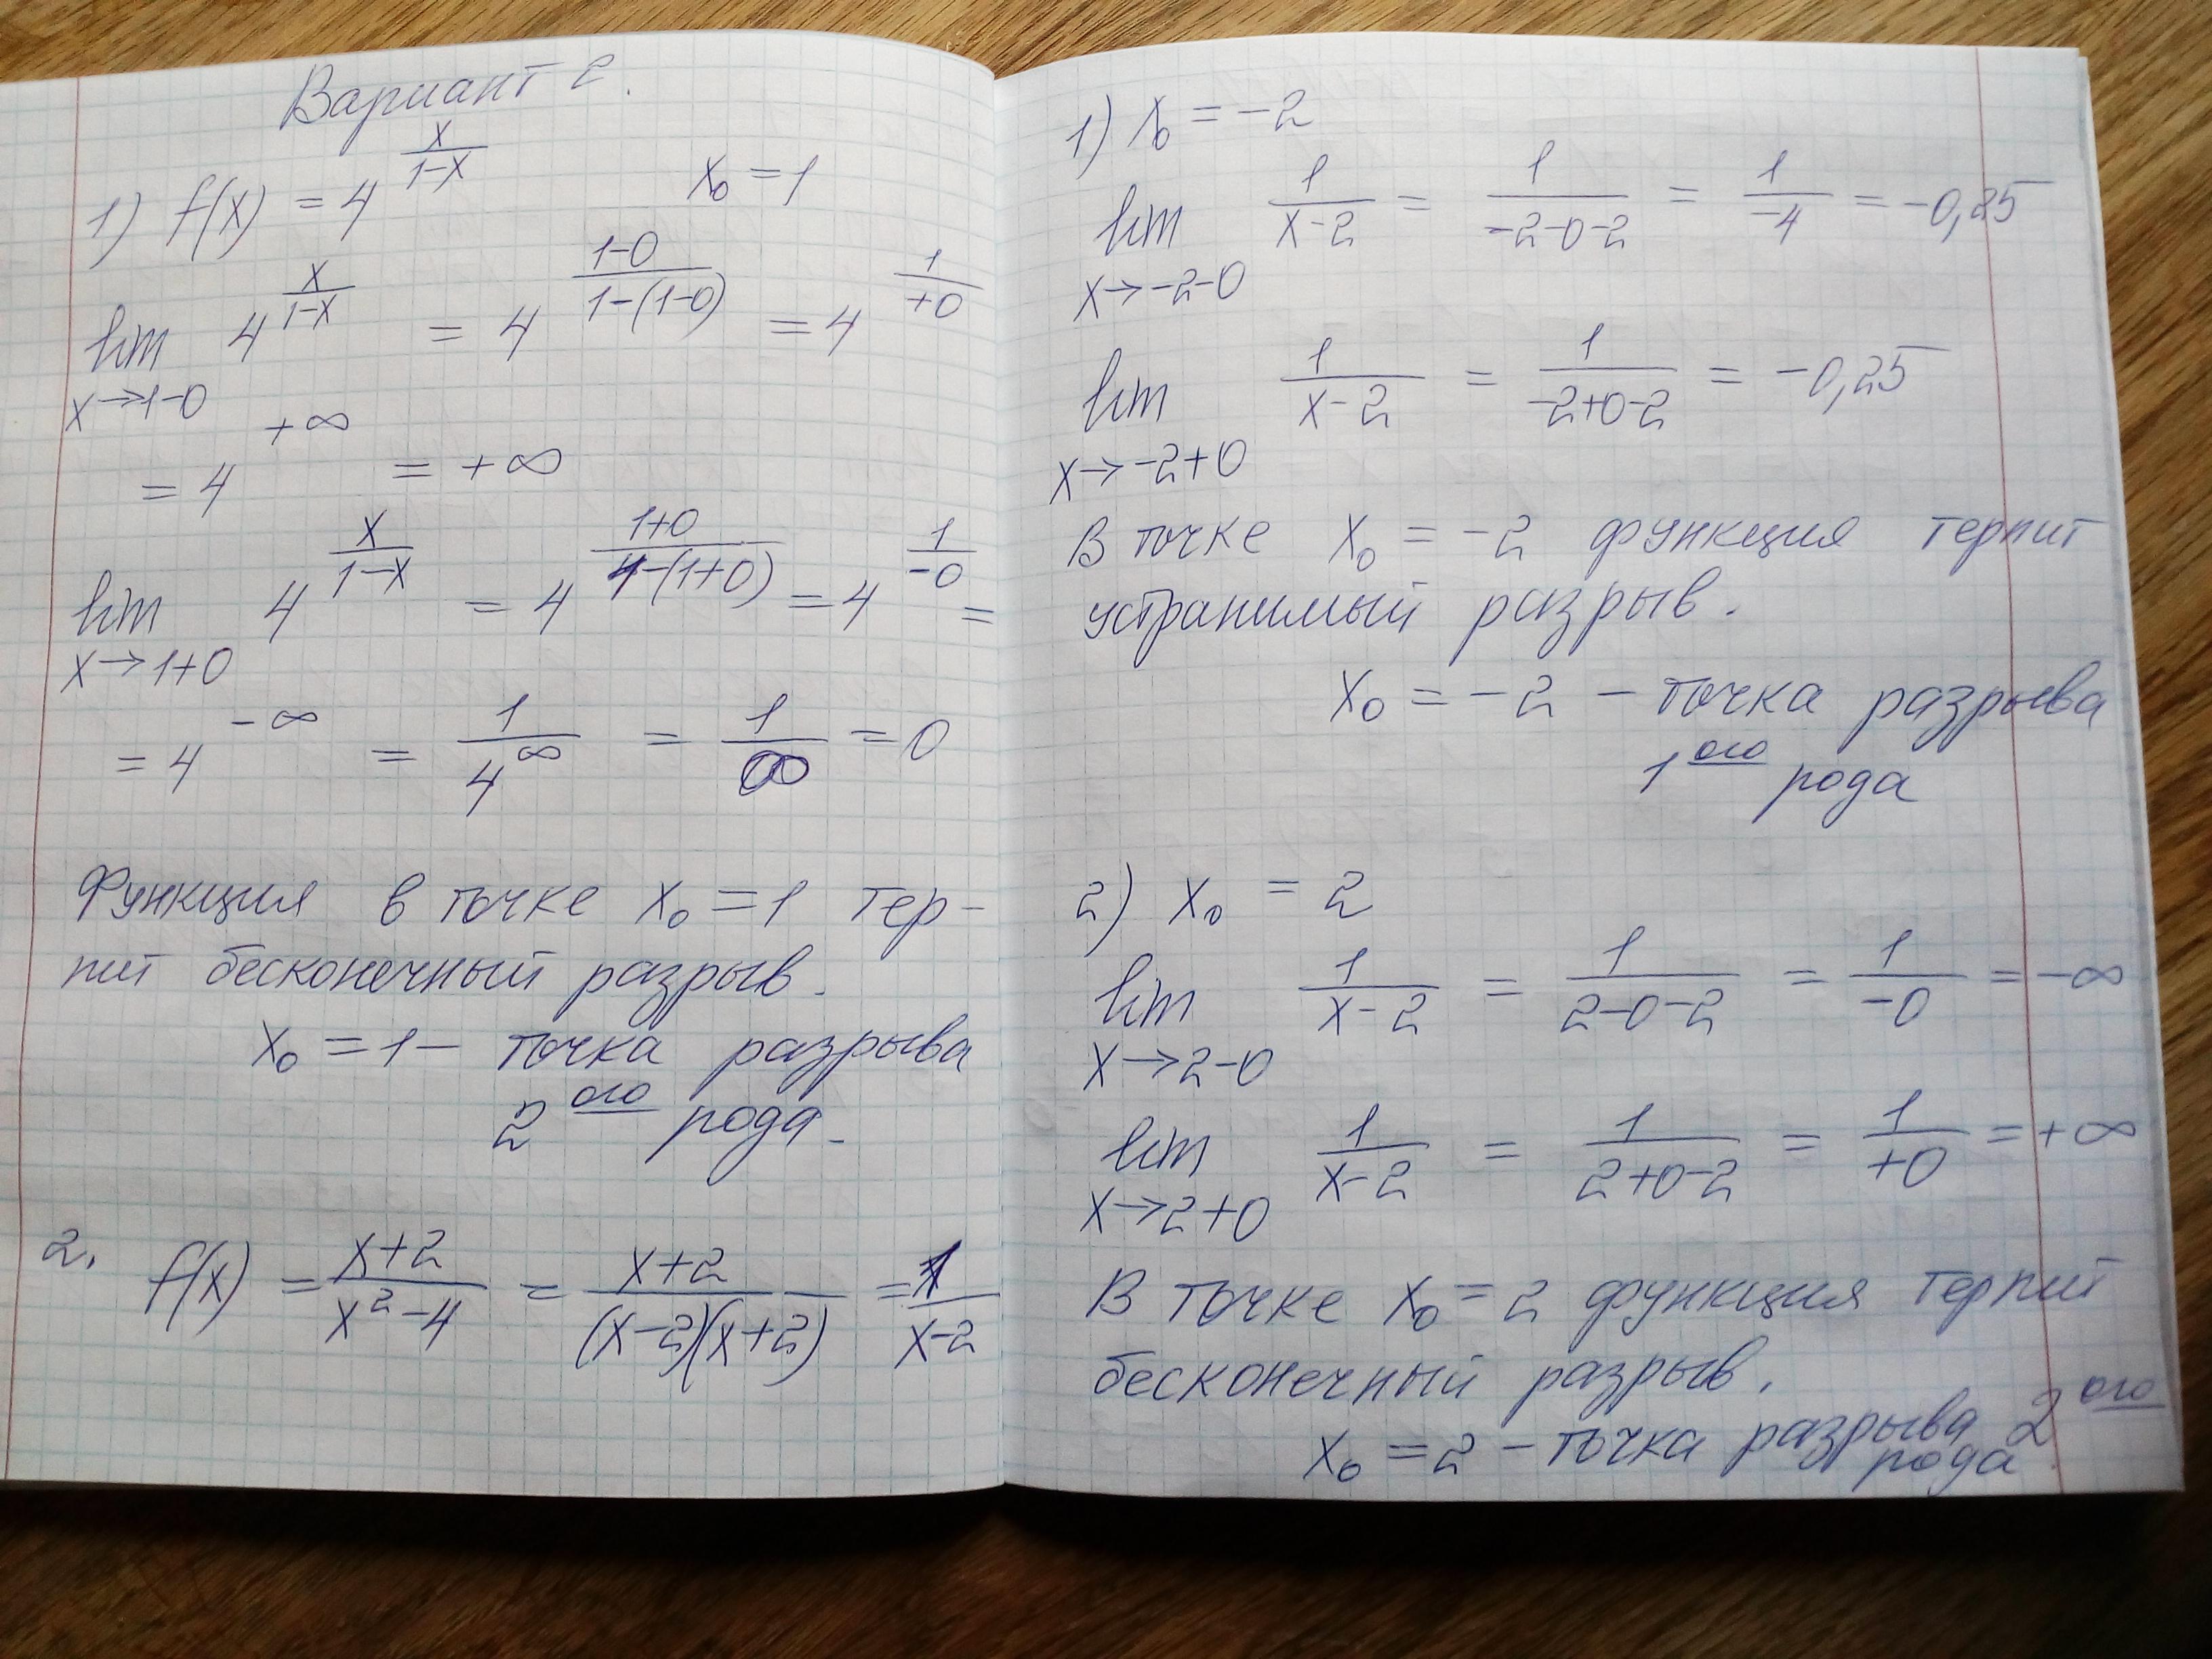 Вариант 2.
1) f(x) = 4^(x/(1-x))    x₀ = 1
lim x→1-0 4^(x/(1-x)) = 4^((1-0)/(1-(1-0))) = 4^(1/+0)
= 4^(+∞) = +∞
lim x→1+0 4^(x/(1-x)) = 4^((1+0)/(1-(1+0))) = 4^(1/-0) =
= 4^(-∞) = 1/4^∞ = 1/∞ = 0
Функция в точке x₀ = 1 тер-
пит бесконечный разрыв.
x₀ = 1 – точка разрыва
2ого рода.
2. f(x) = (x+2)/(x²-4) = (x+2)/((x-2)(x+2)) = 1/(x-2)
1) x₀ = -2
lim x→-2-0 1/(x-2) = 1/(-2-0-2) = 1/-4 = -0,25
lim x→-2+0 1/(x-2) = 1/(-2+0-2) = -0,25
В точке x₀ = -2 функция терпит
устранимый разрыв.
x₀ = -2 – точка разрыва
1ого рода
2) x₀ = 2
lim x→2-0 1/(x-2) = 1/(2-0-2) = 1/-0 = -∞
lim x→2+0 1/(x-2) = 1/(2+0-2) = 1/+0 = +∞
В точке x₀ = 2 функция терпит
бесконечный разрыв.
x₀ = 2 – точка разрыва 2ого
рода.